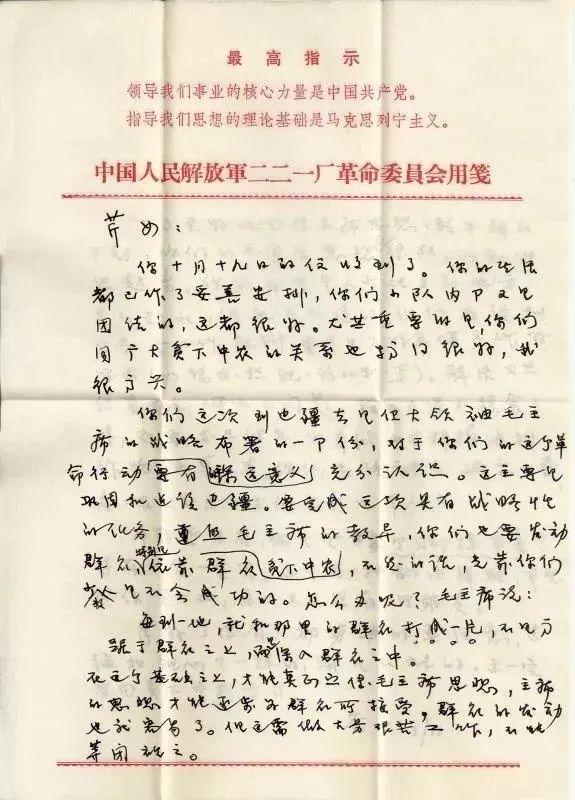 最高指示
领导我们事业的核心力量是中国共产党。
指导我们思想的理论基础是马克思列宁主义。
中国人民解放軍二二一厂革命委員会用箋
芹女：
你十月十九日的信收到了。你的生活
都已作了妥善安排，你们小队内部又是
团结的，这都很好。尤其重要的是，你们
同广大贫下中农的关系也搞得很好，我
很高兴。
你们这次到边疆去是伟大领袖毛主
席的战略布署的一部份，对于你们的这个革
命行动要有深远意义充分认识。这主要是
巩固和建设边疆。要完成这项具有战略性
的任务，遵照毛主席的教导，你们也要发动
群众，特别是依靠群众贫下中农，不然的话，光靠你们
少数人是不会成功的。怎么办呢？毛主席说：
每到一地，就和那里的群众打成一片，不是高
踞于群众之上，而是深入群众之中。
在这个基础上，才能真正宣传毛主席思想，主席
的思想才能逐步为群众所接受，群众的发动
也就容易了。但这需做大量艰苦工作，不能
等闲视之。